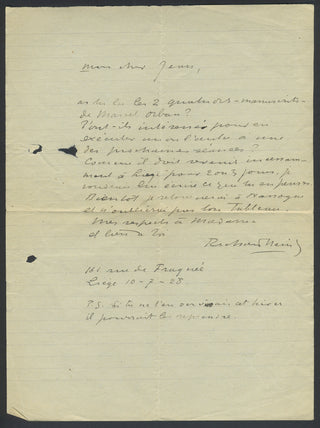 mon cher Jean,
as tu lu les 2 quatuors-manuscrits-
de Marcel Orban?
T'ont-ils intéressé pour en
exécuter un ou l'autre à une
des prochaines séances?
Comme il doit revenir incessam-
ment à Liège pour 2 ou 3 jours, je
voudrais lui écrire ce que tu en penses.
Bientôt je retournerai à
et n'oublierai pas ton tableau
Mes respects à Madame
et bien à toi
161 rue de Fragnée
Liège 10-7-28.
P.S. Si tu ne t'en servirais cet hiver
il pourrait les reprendre.